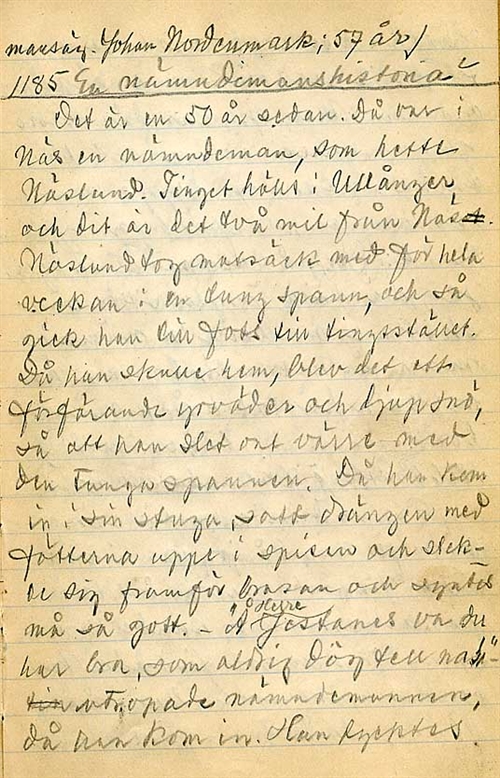 mansäg. Johan Nordenmark; 57 år/
1185 En nämndemanshistoria
Det är en 50 år sedan. Då var i
Näs en nämndeman, som hette
Näslund. Tinget hölls i Ullånger
och dit är det två mil från Näs.
Näslund tog matsäck med för hela
veckan i en tung spann, och så
gick han till fots till tingsstället.
Då han skulle hem, blev det ett
förfärande yrväder och djup snö,
så att han slet ont värre med
den tunga spannen. Då han kom
in i sin stuga, satt drängen med
fötterna uppe i spisen och sträck-
te sig framför brasan och syntes
må så gott. – "Å Herre Jestanes va du
har bra, som aldrig dög tell na",
utropade nämndemannen,
då han kom in. Han tycktes